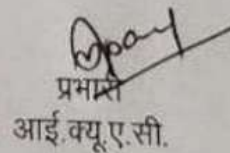 प्रभारी
आई.क्यू.ए.सी.